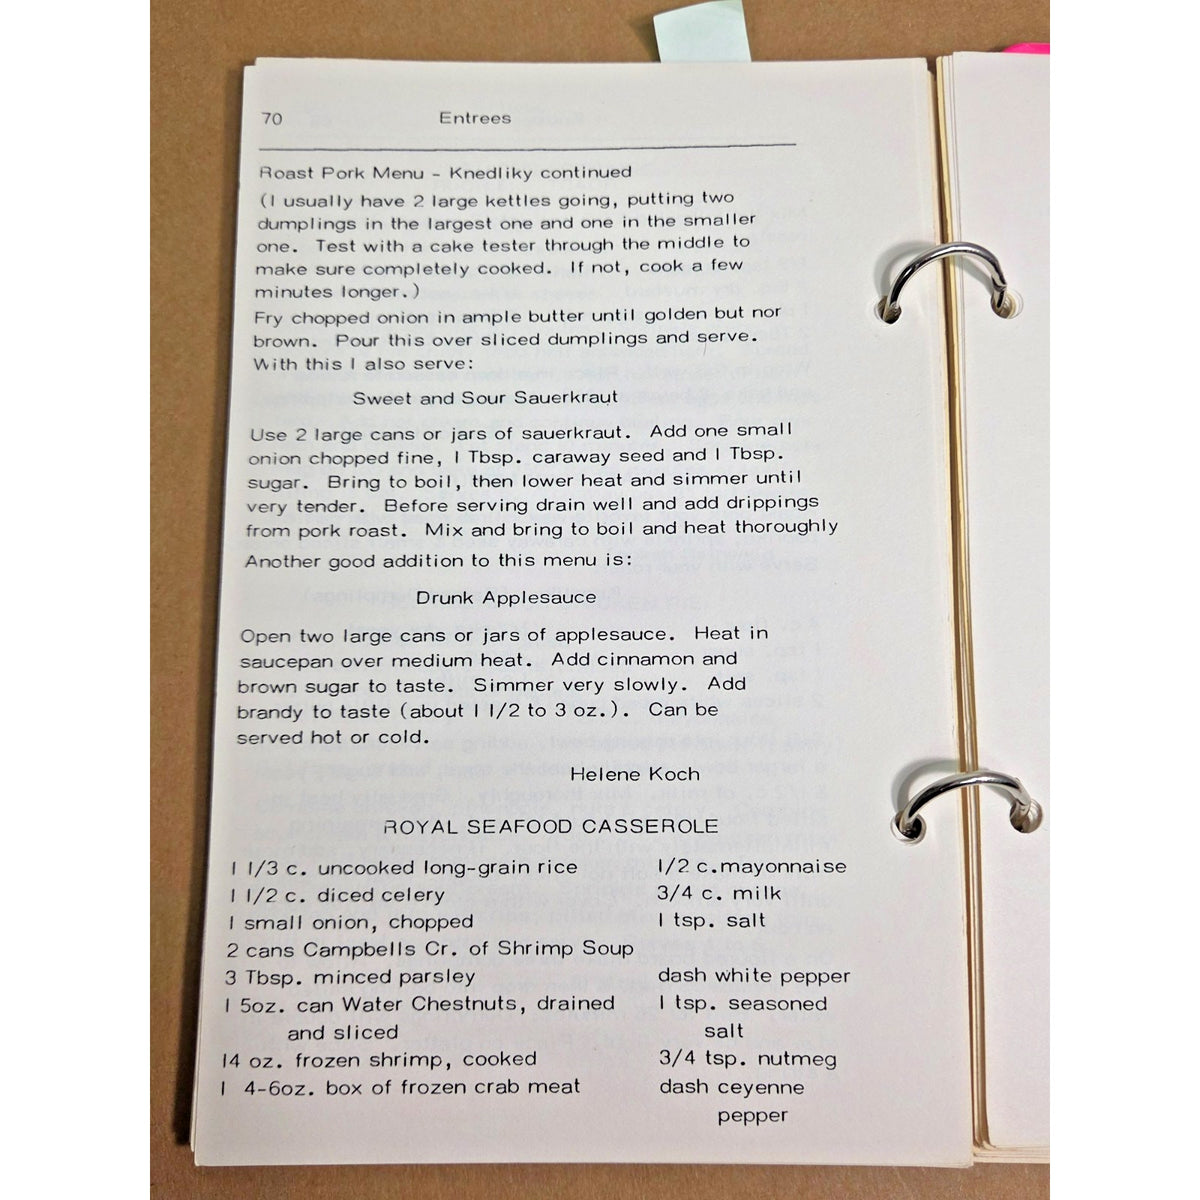 70 Entrees
Roast Pork Menu - Knedliky continued
(I usually have 2 large kettles going, putting two
dumplings in the largest one and one in the smaller
one. Test with a cake tester through the middle to
make sure completely cooked. If not, cook a few
minutes longer.)
Fry chopped onion in ample butter until golden but nor
brown. Pour this over sliced dumplings and serve.
With this I also serve:
Sweet and Sour Sauerkraut
Use 2 large cans or jars of sauerkraut. Add one small
onion chopped fine, 1 Tbsp. caraway seed and 1 Tbsp.
sugar. Bring to boil, then lower heat and simmer until
very tender. Before serving drain well and add drippings
from pork roast. Mix and bring to boil and heat thoroughly
Another good addition to this menu is:
Drunk Applesauce
Open two large cans or jars of applesauce. Heat in
saucepan over medium heat. Add cinnamon and
brown sugar to taste. Simmer very slowly. Add
brandy to taste (about 1 1/2 to 3 oz.). Can be
served hot or cold.
Helene Koch
ROYAL SEAFOOD CASSEROLE
1 1/3 c. uncooked long-grain rice 1/2 c.mayonnaise
1 1/2 c. diced celery 3/4 c. milk
1 small onion, chopped 1 tsp. salt
2 cans Campbells Cr. of Shrimp Soup
3 Tbsp. minced parsley dash white pepper
1 5oz. can Water Chestnuts, drained 1 tsp. seasoned
and sliced salt
14 oz. frozen shrimp, cooked 3/4 tsp. nutmeg
1 4-6oz. box of frozen crab meat dash ceyenne
pepper